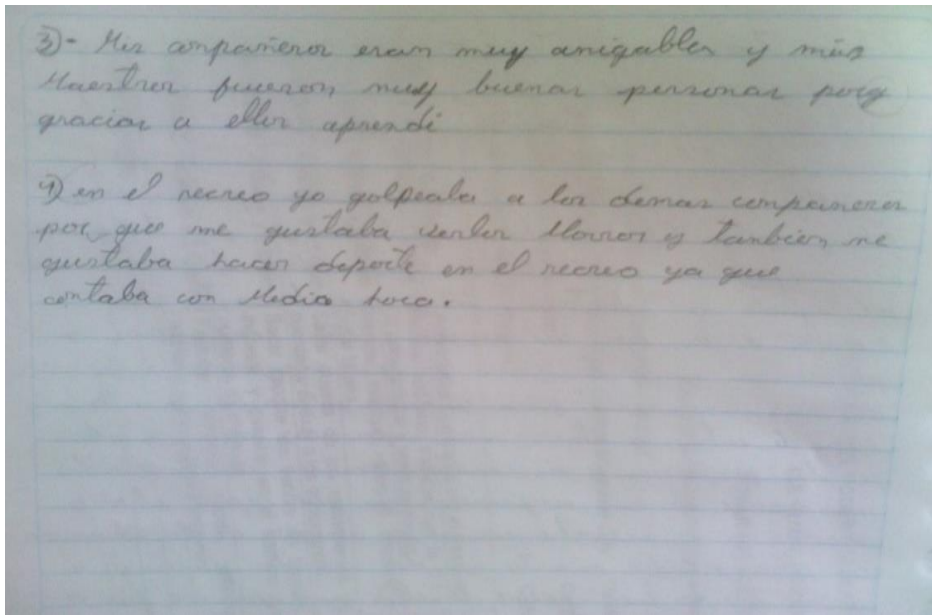 3)- Mis conpañeros eran muy amigables y mis
Maestros fueron muy buenas personas porq
gracias a ellos aprendi
4) en el recreo yo golpeaba a los demas compañeros
por que me gustaba verlos llorar y tanbien me
gustaba hacer deporte en el recreo ya que
contaba con Media hora.